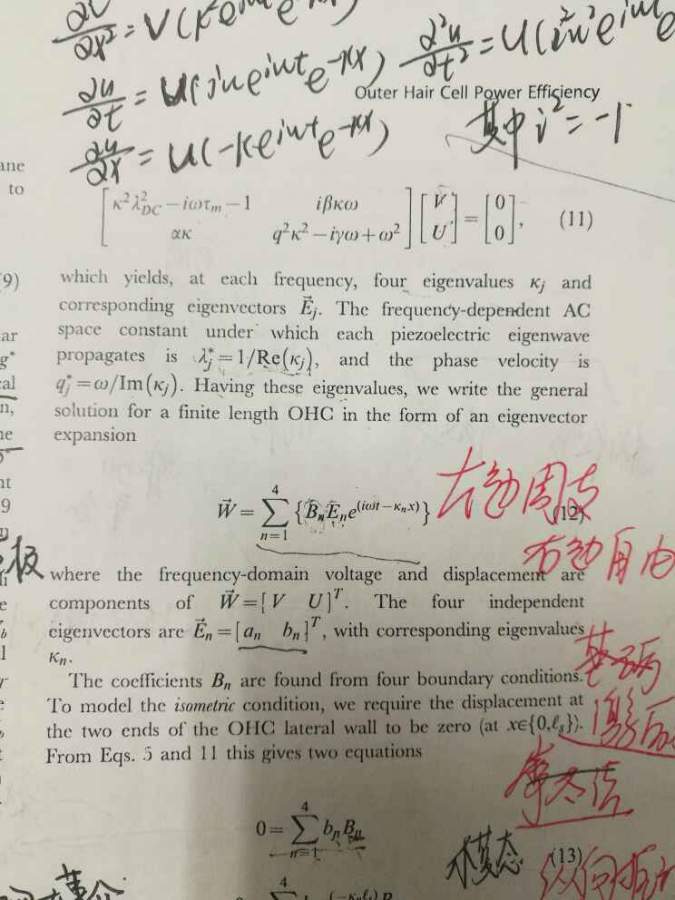 ∂²V/∂x² = V(κ²e^{iωt}e^{-κx})
∂u/∂t = U(iωe^{iωt}e^{-κx}), ∂²u/∂t² = U(i²ω²e^{iωt}e
Outer Hair Cell Power Efficiency
∂u/∂x = U(-κe^{iωt}e^{-κx}) 其中 i² = -1
ane
to
[κ²λ²_DC − iωτ_m − 1 iβκω; ακ q²κ² − iγω + ω²] [V; U] = [0; 0], (11)
9) which yields, at each frequency, four eigenvalues κ_j and
corresponding eigenvectors E⃗_j. The frequency-dependent AC
ar space constant under which each piezoelectric eigenwave
g* propagates is λ*_j = 1/Re(κ_j), and the phase velocity is
cal q*_j = ω/Im(κ_j). Having these eigenvalues, we write the general
n, solution for a finite length OHC in the form of an eigenvector
expansion
W⃗ = Σ_{n=1}^{4} {B_n E⃗_n e^{(iωt − κ_n x)}} (12)
左边固支
右边自由
板
where the frequency-domain voltage and displacement are
components of W⃗ = [V U]^T. The four independent
eigenvectors are E⃗_n = [a_n b_n]^T, with corresponding eigenvalues
κ_n.
The coefficients B_n are found from four boundary conditions.
To model the isometric condition, we require the displacement at
the two ends of the OHC lateral wall to be zero (at x∈{0,ℓ_s}).
From Eqs. 5 and 11 this gives two equations
0 = Σ_{n=1}^{4} b_n B_n (13)
模态
纵向
4